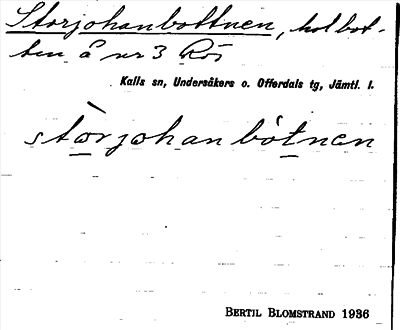 Storjohanbottnen, holbot-
ten å nr 3 Rös
Kalls sn, Undersåkers o. Offerdals tg, Jämtl. l.
stòrjohanbótnen
BERTIL BLOMSTRAND 1936